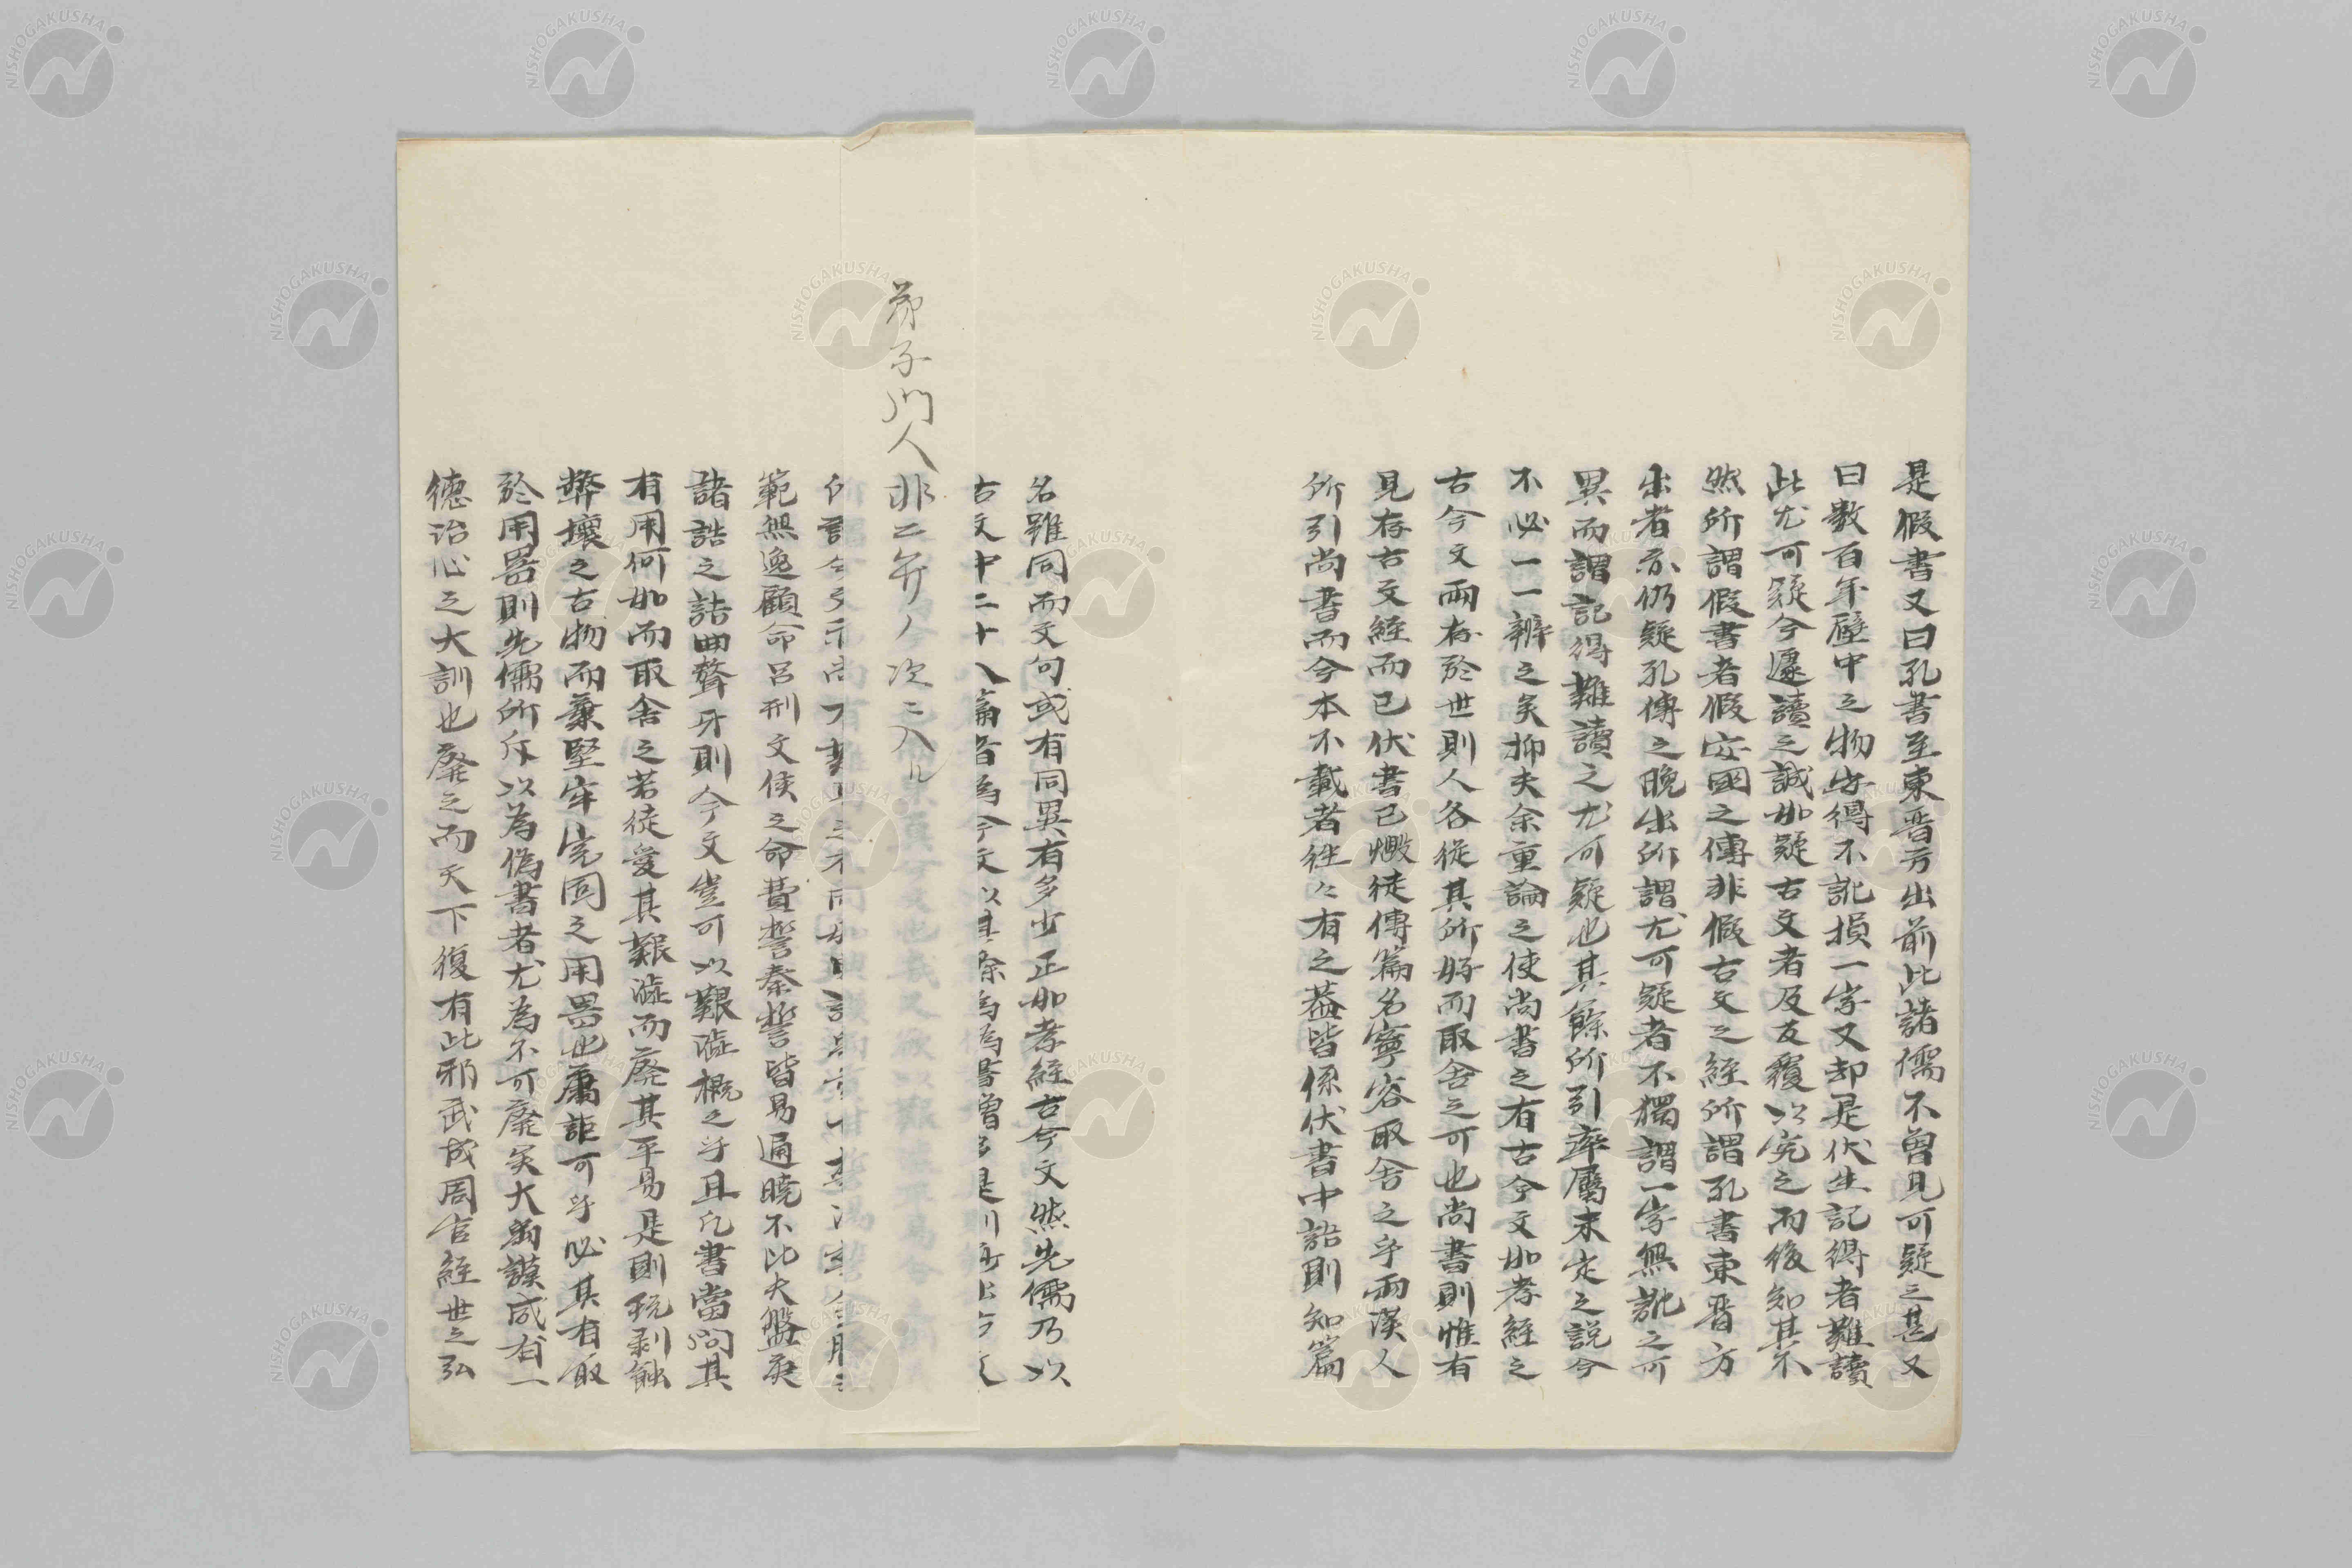 是假書又曰孔書至東晋方出前此諸儒不曽見可疑之甚又
曰数百年壁中之物安得不訛損一字又却是伏生記得者難讀
此尤可疑今遽讀之誠如疑古文者及反覆以究之而後知其不
然所謂假書者假安國之傳非假古文之経所謂孔書東晋方
出者亦仍疑孔傳之晚出所謂尤可疑者不獨謂一字無訛之可
異而謂記得難讀之尤可疑也其餘所引率屬未定之說今
不必一一辨之矣抑夫余重論之使尚書之有古今文如孝経之
古今文兩存於世則人各從其所好而取舎之可也尚書則惟有
見存古文経而已伏書已燬徒傳篇名寧容取舎之乎兩漢人
所引尚書而今本不載者往々有之葢皆係伏書中語則知篇
名雖同而文句或有同異有多少正如孝経古今文然先儒乃以
古文中二十八篇者為今文以其餘為偽書増多是
弟子門人非二弁ノ次ニ入ル
範無逸顧命呂刑文侯之命費誓秦誓皆易通曉不比夫盤庚
諸誥之詰曲聱牙則今文豈可以艱澁概之乎且凡書當問其
有用何如而取舎之若徒愛其艱澁而廃其平易是則玩剥蝕
弊壞之古物而棄堅牢完固之用噐也庸詎可乎必其有取
於用噐則先儒所斥以為偽書者尤為不可廃矣大禹謨咸有一
德治心之大訓也廃之而天下復有此邪武成周官経世之弘